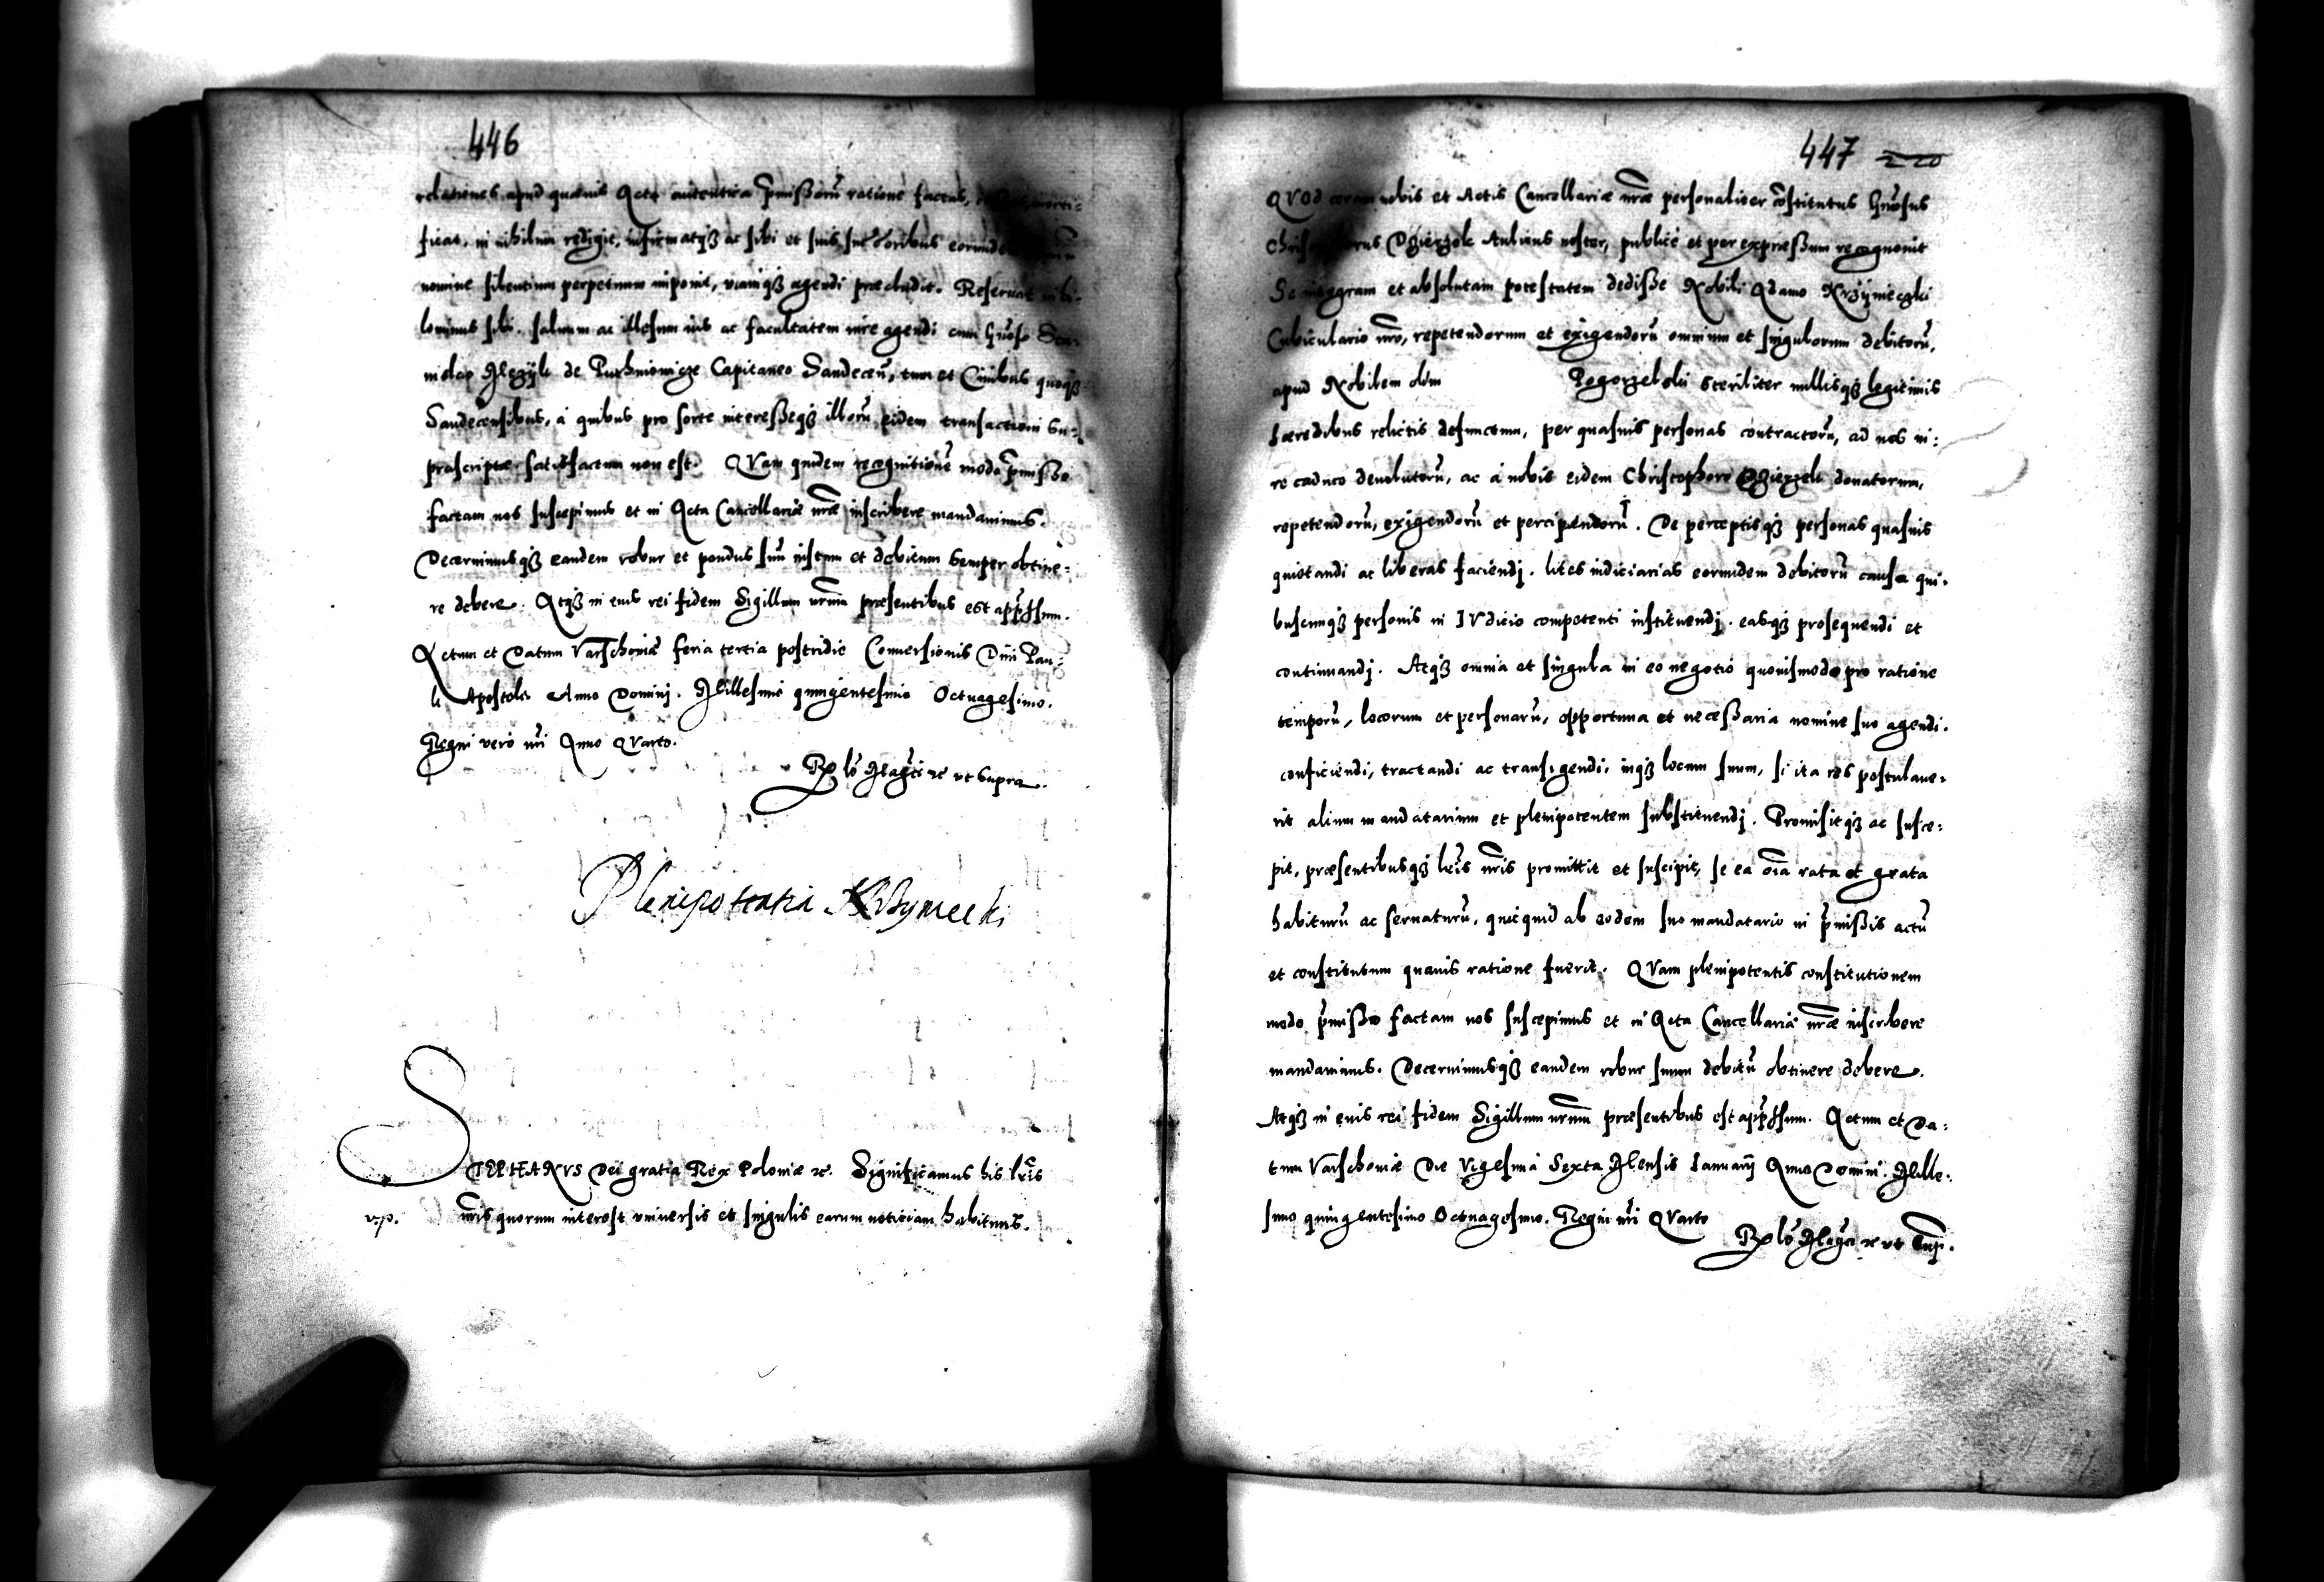 446
relationes apud quævis Acta autentica p̃missorũ ratione factas,
ficat, in nihilum redigit, infirmatq₃ ac sibi et suis successoribus
nomine silentium perpetuum imponit, viamq₃ agendi præcludit. Reservat nihi-
lominus sibi salvum ac illesum ius ac facultatem iure agendi cum Gñoso Sta-
nislao de Capitaneo Sandeceñ, tum et Civibus quoq₃
Sandecensibus, a quibus pro sorte interesseq₃ illorũ eidem transactioni su-
præscriptæ satisfactum non est. QVam quidem recognitionẽ modo p̃misso
factam nos suscepimus et in Acta Cancellariæ nr̃æ inscribere mandavimus.
Decernimusq₃ eandem robur et pondus suũ iustum et debitum semper obtine-
re debere. Atq₃ in eius rei fidem Sigillum nr̃um præsentibus est app̃ssum.
Actum et Datum Varschoviæ feria tertia postridie Conversionis Diui Pau-
li Apostoli Anno Domini. Millesimo quingentesimo Octuagesimo.
Regni vero nr̃i Anno QVarto.
ut supra.
Plenipotentia Krzymecki
STEPHANVS Dei gratia Rex Poloniæ ꝛc. Significamus his lr̃is
nr̃is quorum interest universis et singulis earum notitiam habituris.
447
QVOd coram nobis et Actis Cancellariæ nr̃æ personaliter cõstitutus Gñosus
Christophorus Dzierzek Aulicus noster, publicè et per expressum recognovit
Se integram et absolutam potestatem dedisse Nobili Adamo Krzymeczki
Cubiculario nr̃o, repetendorum et exigendorũ omnium et singulorum debitorũ,
apud Nobilem olim Pogorzelski steriliter nullisq₃ legitimis
hæredibus relictis defunctum, per quasvis personas contractorũ, ad nos iu-
re caduco devolutorũ, ac à nobis eidem Christophoro Dzierzek donatorum,
repetendorũ, exigendorũ et percipiendorũ. De perceptisq₃ personas quasvis
quietandi ac liberas faciendj. lites iudiciarias eorundem debitorũ causa qui-
buscunq₃ personis in IVdicio competenti instituendj. easq₃ prosequendi et
continuandj. Atq₃ omnia et singula in eo negotio quovismodo pro ratione
temporũ, locorum et personarũ, opportuna et necessaria nomine suo agendi.
conficiendi, tractandi ac transigendi, inq₃ locum suum, si ita res postulave-
rit alium mandatarium et plenipotentem substituendj. Promisitq₃ ac susce-
pit, præsentibusq₃ lr̃is nr̃is promittit et suscipit, se ea oĩa rata et grata
habiturũ ac servaturũ, quicquid ab eodem suo mandatario in p̃missis actũ
et constitutum quavis ratione fuerit. QVam plenipotentis constitutionem
modo p̃misso factam nos suscepimus et in Acta Cancellariæ nr̃æ inscribere
mandavimus. Decernimusq₃ eandem robur suum debitũ obtinere debere.
Atq₃ in euis rei fidem Sigillum nr̃um præsentibus est app̃ssum. Actum et Da-
tum Varschoviæ Die Vigesima Sexta Mensis Ianuarij Anno Domini. Mille-
simo quingentesimo Octuagesimo. Regni nr̃i QVarto
ꝛc ut sup̃.